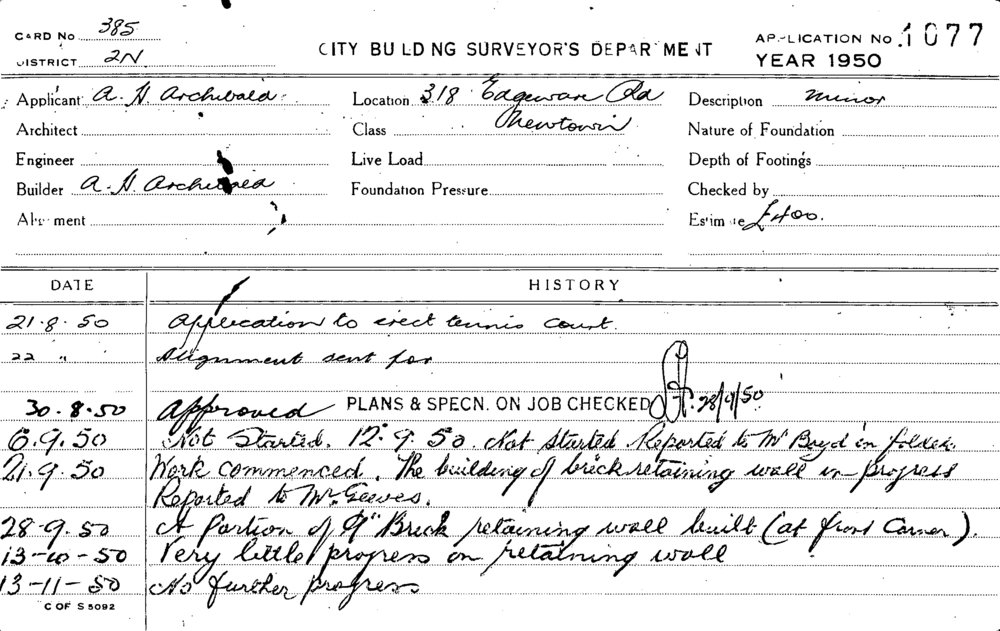 CARD No 385
DISTRICT 2N
CITY BUILDING SURVEYOR'S DEPARTMENT
APPLICATION No. 1077
YEAR 1950
Applicant A. H. Archibald
Location 318 Edgeware Rd
Newtown
Description minor
Architect
Class
Nature of Foundation
Engineer
Live Load
Depth of Footings
Builder A. H. Archibald
Foundation Pressure
Checked by
Alignment
Estimate £400.
DATE HISTORY
21.8.50 Application to erect tennis court.
22 " Alignment sent for
30.8.50 Approved PLANS & SPECN. ON JOB CHECKED 28/9/50
6.9.50 Not Started. 12.9.50. Not Started Reported to Mr Boyd in folder.
21.9.50 Work commenced. The building of brick retaining wall in progress
Reported to Mr. Geeves.
28-9.50 A portion of 9" Brick retaining wall built (at front corner).
13-10-50 Very little progress on retaining wall
13-11-50 No further progress
C OF S 5092